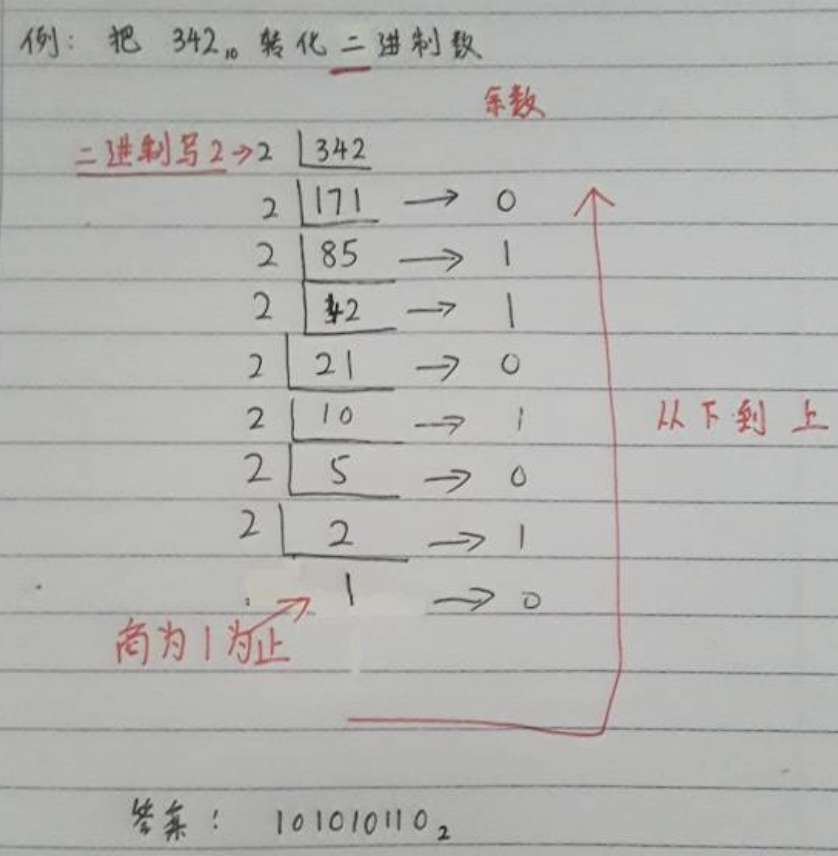 例: 把 342₁₀ 转化二进制数
余数
二进制写2→2 342
2 171 → 0
2 85 → 1
2 42 → 1
2 21 → 0
2 10 → 1
从下到上
2 5 → 0
2 2 → 1
1 → 0
商为1为止
答案: 101010110₂